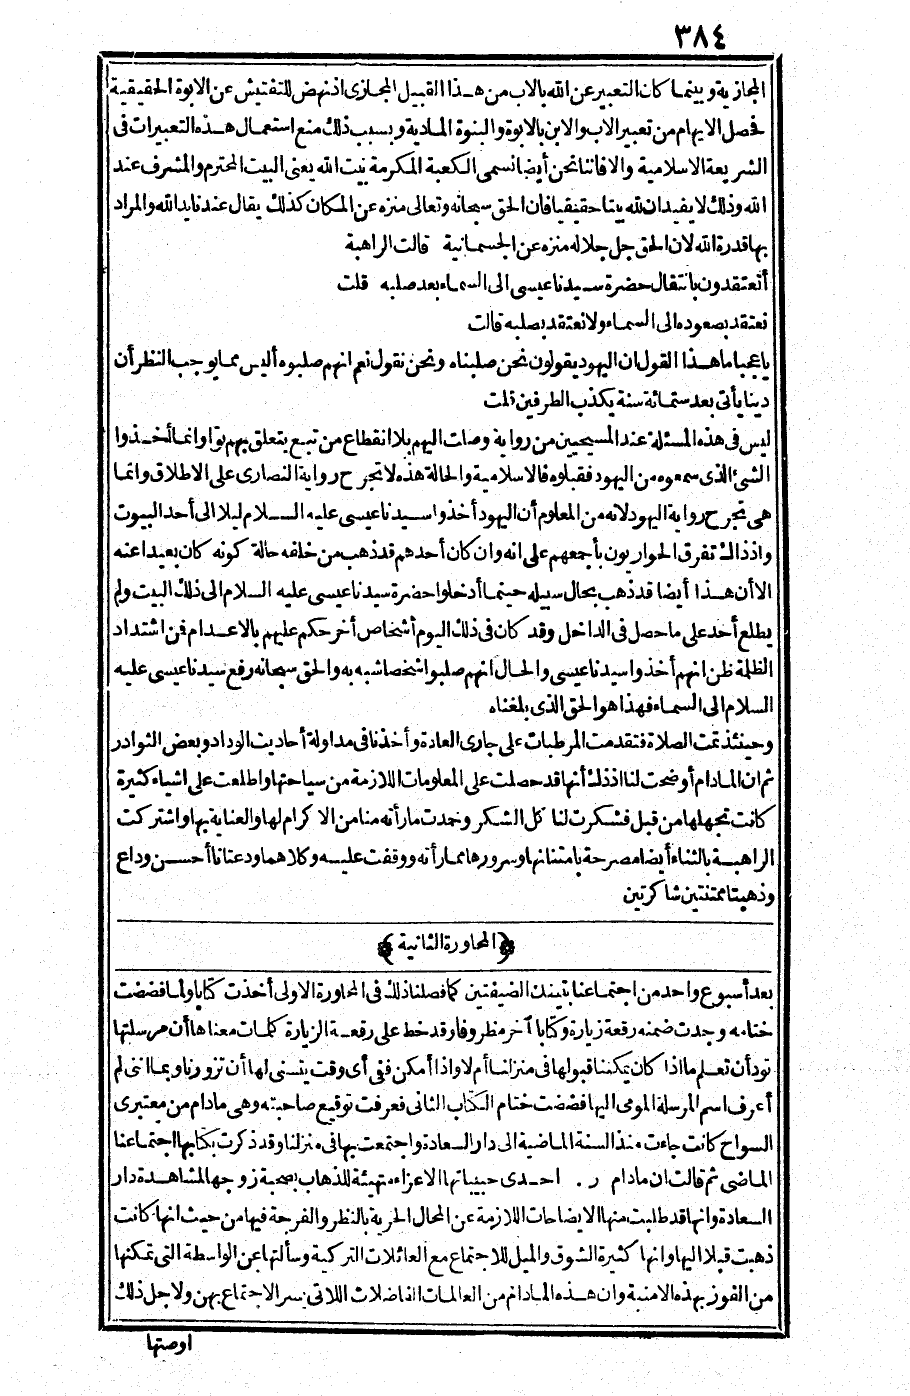 ٣٨٤
المجازية وبينما كان التعبير عن الله بالاب من هذا القبيل المجازى اذ نهض للتفتيش عن الابوة الحقيقية
فحصل الايهام من تعبير الاب والابن بالابوة والبنوة المادية وبسبب ذلك منع استعمال هذه التعبيرات فى
الشريعة الاسلامية والا فاننا نحن أيضا نسمى الكعبة المكرمة بيت الله يعنى البيت المحترم والمشرف عند
الله وذلك لا يفيد ان لله بيتا حقيقيا فان الحق سبحانه وتعالى منزه عن المكان كذلك يقال عندنا يد الله والمراد
بها قدرة الله لان الحق جل جلاله منزه عن الجسمانية قالت الراهبة
أتعتقدون بانتقال حضرة سيدنا عيسى الى السماء بعد صلبه قلت
نعتقد بصعوده الى السماء ولا نعتقد بصلبه قالت
ياعجبا ما هذا القول ان اليهود يقولون نحن صلبناه ونحن نقول نعم انهم صلبوه أليس مما يوجب النظر أن
دينا يأتى بعد ستمائة سنة يكذب الطرفين قلت
ليس فى هذه المسئلة عند المسيحيين من رواية وصلت اليهم بلا انقطاع من تبع يتعلق بهم توا وانما أخذوا
الشئ الذى سمعوه من اليهود فقبلوه فالاسلامية والحالة هذه لا تجرح رواية النصارى على الاطلاق وانما
هى تجرح رواية اليهود لانه من المعلوم أن اليهود أخذوا سيدنا عيسى عليه السلام ليلا الى أحد البيوت
واذ ذاك تفرق الحواريون بأجمعهم على انه وان كان أحدهم قد ذهب من خلفه حالة كونه كان بعيدا عنه
الا أن هذا أيضا قد ذهب بحال سبيله حينما أدخلوا حضرة سيدنا عيسى عليه السلام الى ذلك البيت ولم
يطلع أحد على ما حصل فى الداخل وقد كان فى ذلك اليوم أشخاص أخر حكم عليهم بالاعدام فن اشتداد
الظلمة ظن انهم أخذوا سيدنا عيسى والحال انهم صلبوا شخصا شبه به والحق سبحانه رفع سيدنا عيسى عليه
السلام الى السماء فهذا هو الحق الذى بلغناه
وحينئذ تمت الصلاة فتقدمت المرطبات على جارى العادة وأخذنا فى مداولة أحاديث الوداد وبعض النوادر
ثم ان المادام أوضحت لنا اذ ذاك أنها قد حصلت على المعلومات اللازمة من سياحتها واطلعت على اشياء كثيرة
كانت تجهلها من قبل فشكرت لنا كل الشكر وحمدت ما رأته منا من الاكرام لها والعناية بها واشتركت
الراهبة بالثناء أيضا مصرحة بامتنانها وسرورها مما رأته ووقفت عليه وكلاهما ودعتانا أحسن وداع
وذهبتا ممتنتين شاكرتين
﴿المحاورة الثانية﴾
بعد أسبوع واحد من اجتماعنا بتينك الضيفتين كما فصلنا ذلك فى المحاورة الاولى أخذت كتابا ولما فضضت
ختامه وجدت ضمنه رقعة زيارة وكتابا آخر مظروفا وقد خط على رقعة الزيارة كلمات معناها أن مرسلتها
تود أن تعلم ما اذا كان يمكننا قبولها فى منزلنا أم لا واذا أمكن ففى أى وقت يتسنى لها أن تزورنا وبما اننى لم
أعرف اسم المرسلة المومى اليها فضضت ختام الكتاب الثانى فعرفت توقيع صاحبته وهى مادام من معتبرى
السواح كانت جاءت منذ السنة الماضية الى دار السعادة واجتمعت بها فى منزلنا وقد ذكرت بكتابها اجتماعنا
الماضى ثم قالت ان مادام ر . احدى حبيباتها الاعزاء متهيئة للذهاب بصحبة زوجها لمشاهدة دار
السعادة وانها قد طلبت منها الايضاحات اللازمة عن المحال الحرية بالنظر والفرجة فيها من حيث انها كانت
ذهبت قبلا اليها وانها كثيرة الشوق والميل للاجتماع مع العائلات التركية وسألتها عن الواسطة التى تمكنها
من الفوز بهذه الامنية وان هذه المادام من العالمات الفاضلات اللاتى يسر الاجتماع بهن ولاجل ذلك
اوصتها